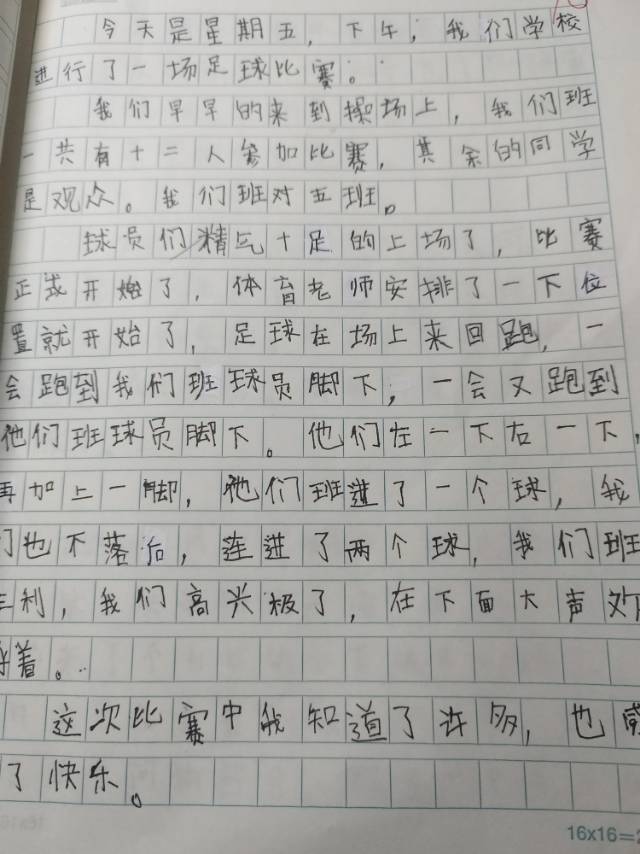 今天是星期五，下午，我们学校
进行了一场足球比赛。
我们早早的来到操场上，我们班
一共有十二人参加比赛，其余的同学
是观众。我们班对五班。
球员们精气十足的上场了，比赛
正式开始了，体育老师安排了一下位
置就开始了，足球在场上来回跑，一
会跑到我们班球员脚下，一会又跑到
他们班球员脚下。他们左一下右一下，
再加上一脚，他们班进了一个球，我
们也不落后，连进了两个球，我们班
利，我们高兴极了，在下面大声欢
呼着。
这次比赛中我知道了许多，也感
了快乐。
16x16=2